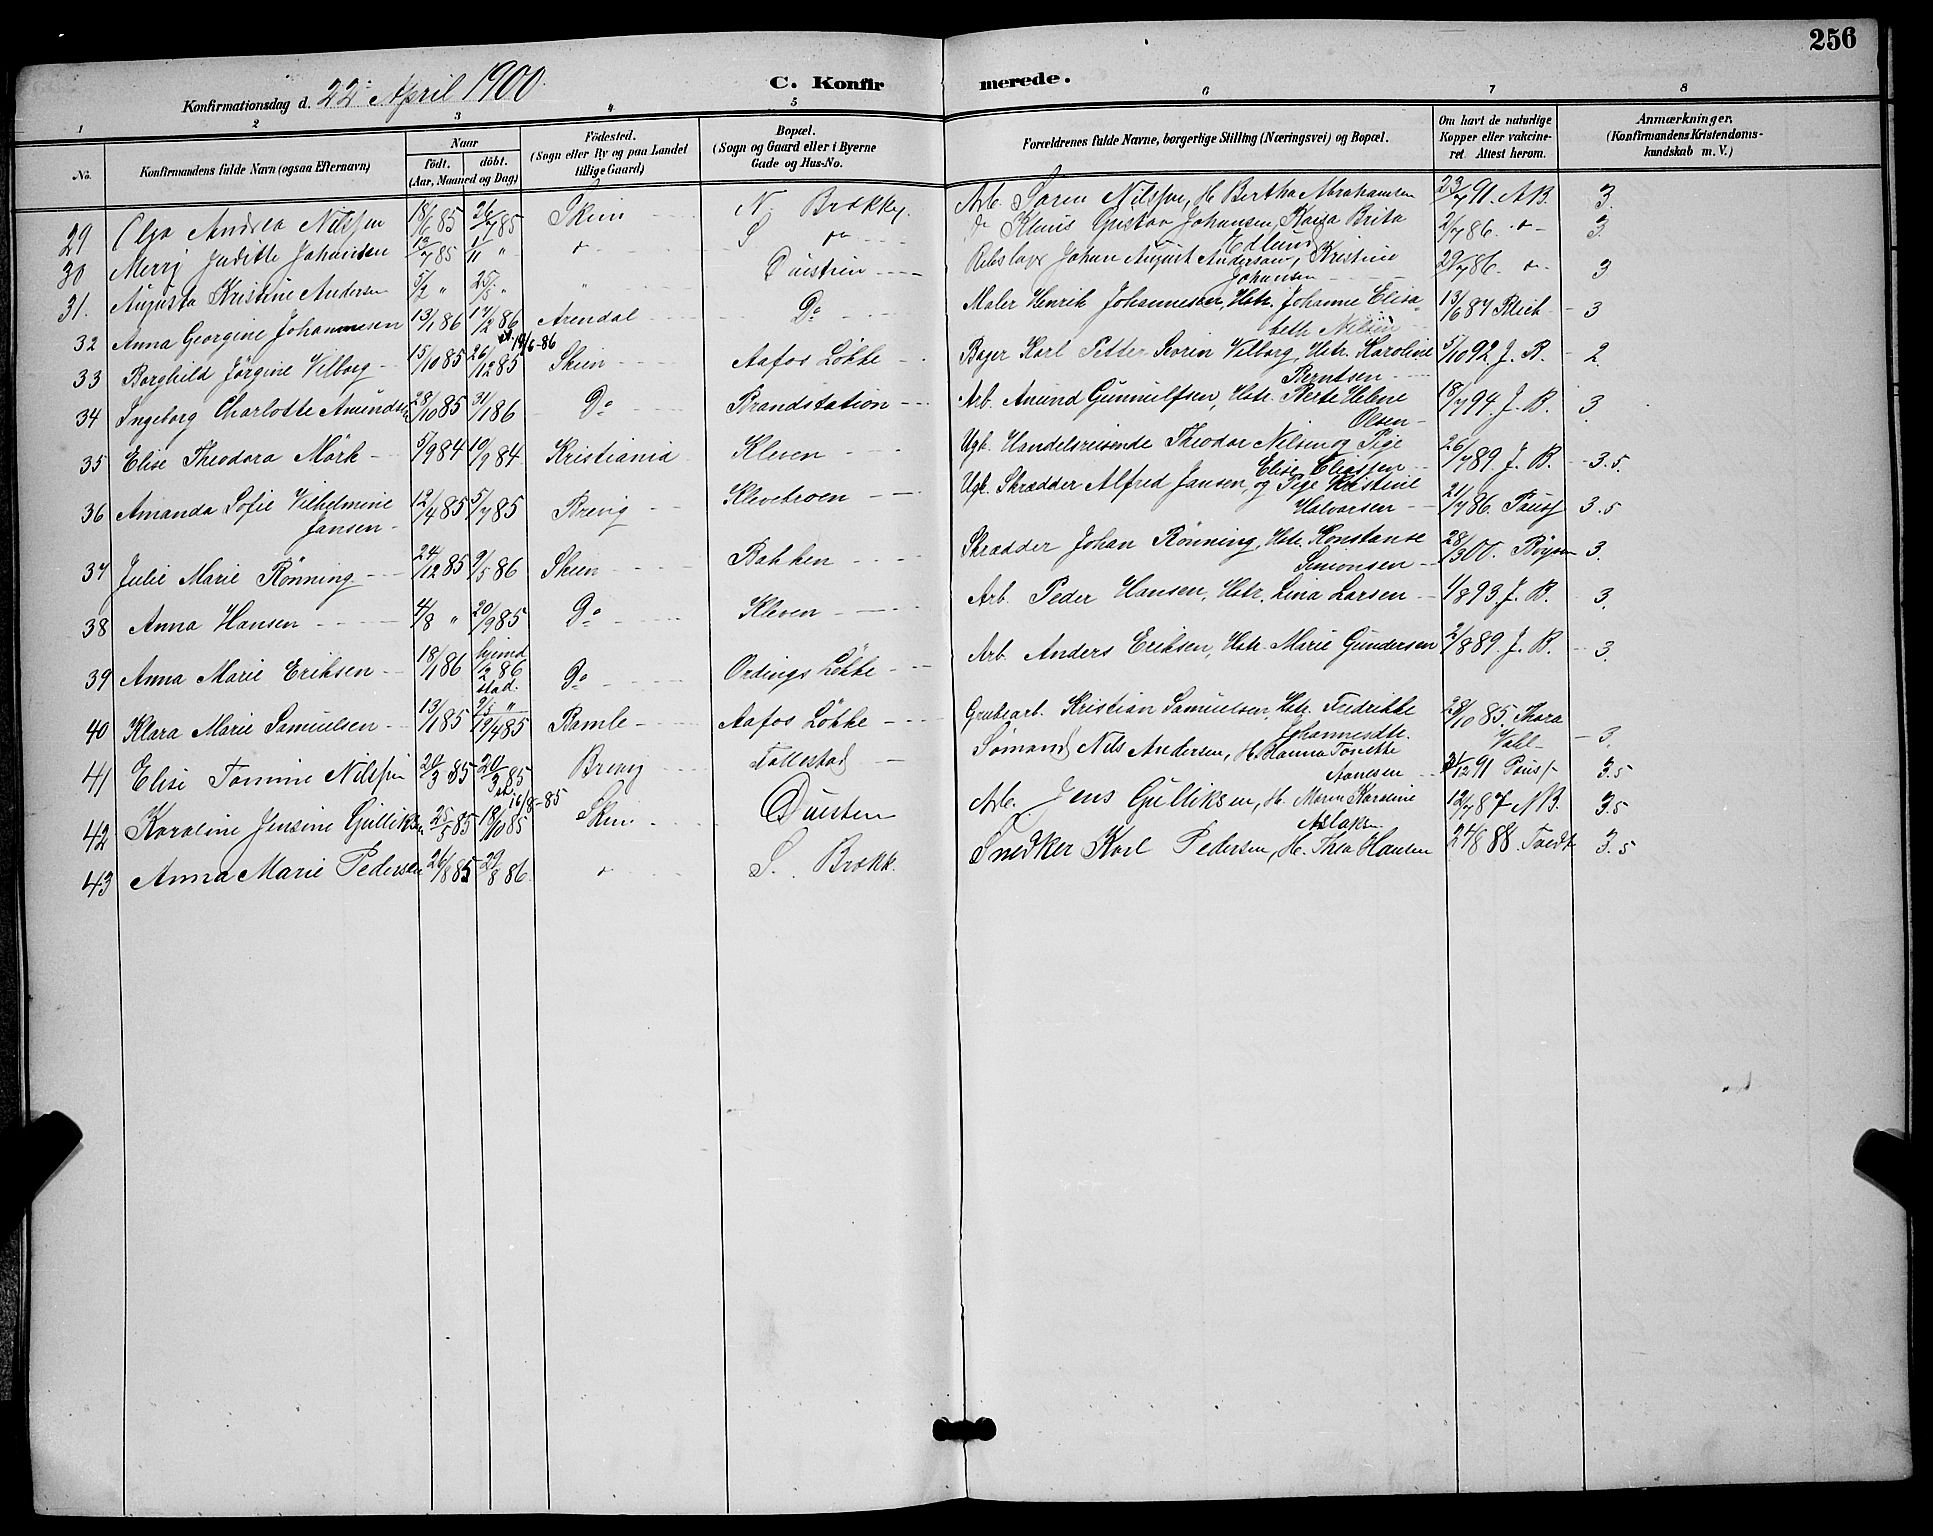 256
Konfirmationsdag d. 22 April 1900.
C. Konfirmerede.
1 2 3 4 5 6 7 8
No.
Konfirmandens fulde Navn (ogsaa Efternavn)
Naar
födt. döbt.
(Aar, Maaned og Dag)
Födested.
(Sogn eller By og paa Landet
tillige Gaard)
Bopæl.
(Sogn og Gaard eller i Byerne
Gade og Hus-No.
Forældrenes fulde Navne, borgerlige Stilling (Næringsvei) og Bopæl.
Om havt de naturlige
Kopper eller vakcine-
ret. Attest herom.
Anmærkninger.
(Konfirmandens Kristendoms-
kundskab m. V.)
29 Olga Andrea Nilssen 18/6 85 26/7 85 Skien N. Brækkeg. Arb. Søren Nilssen, H. Bertha Abrahamsen 23/7 91. A B. 3.
30 Merrij Juditte Johansen 13/7 85 1/11 " S Do Klaus Gustav Johansen, Kaisa Brita 2/7 86. 3.
Edlund
31. Augusta Kristine Andersen 5/2 " 25/5 " " Duestien Rebslager Johan August Andersen, Kristine 29/7 86. 3
Johansen
32 Anna Georgine Johannesen 13/1 86 14/2 86 Arendal Do Maler Henrik Johannesen, Hstr. Johanne Elisa- 13/6 87 Blich 3
st. 18/6-86
beth Nilsen
33 Borghild Jørgine Vilborg 15/10 85 26/12 85 Skien Aafos Løkke Bager Karl Petter Severin Vilborg, Hstr. Karoline 5/10 92 J. B. 2.
Berntsen
34 Ingeborg Charlotte Amunds. 28/10 85 31/1 86 Do Brandstation Arb. Amund Gunnulfsen, Hstr. Berte Helene 18/7 94. J. B. 3.
Olsen
35 Elise Theodora Mörk 5/9 84 10/9 84 Kristiania Kleven Ugt. Handelsreisende Theodor Nilsen og Pige 26/7 89. J. B. 3.5.
Elise Eliassen
36 Amanda Sofie Vilhelmine 12/4 85 5/7 85 Brevig Klevebroen Ugt. Skrædder Alfred Jansen, og Pige Kristine 21/7 86. Paus 3.5
Jansen Halvorsen
37 Julie Marie Rønning 24/12 85 9/5 86 Skien Bakken Skrædder Johan Rønning, Hstr. Konstanse 28/3 00. 3.
Simonsen
38 Anna Hansen 4/8 " 20/9 85 Do Kleven Arb. Peder Hansen, Hstr. Lina Larsen 1/8 93. J. B. 3.
39 Anna Marie Eriksen 18/1 86 hjemd 1/2 86 Do Ordings Løkke Arb. Anders Eriksen, Hstr. Marie Gundersen 2/8 89. J. B. 3.
stad. 9/5 "
40 Klara Marie Samuelsen 13/1 85 19/4 85 Bamle Aafos Løkke Grubearb. Kristian Samuelsen, Hstr. Fredrikke 28/10 85. Thora 3.
Johannesdtr. Vahl
41 Elise Tomine Nilssen 20/3 85 20/3 85 Brevig Follestad Sømand Nils Andersen, H. Hanna Tonette 31/12 91 Paus 3.5
st. 16/8-85 Aanesen
42 Karoline Jensine Gulliksen 25/5 85 18/10 85 Skien Duestien Arb. Jens Gulliksen, H. Maren Karoline 12/7 87 N B. 3.5
Aslaks.
43 Anna Marie Pedersen 26/8 85 29/8 86. S. Brækk. Snedker Karl Pedersen, H. Thea Hansen 24/8 88. Tvedt 3.5